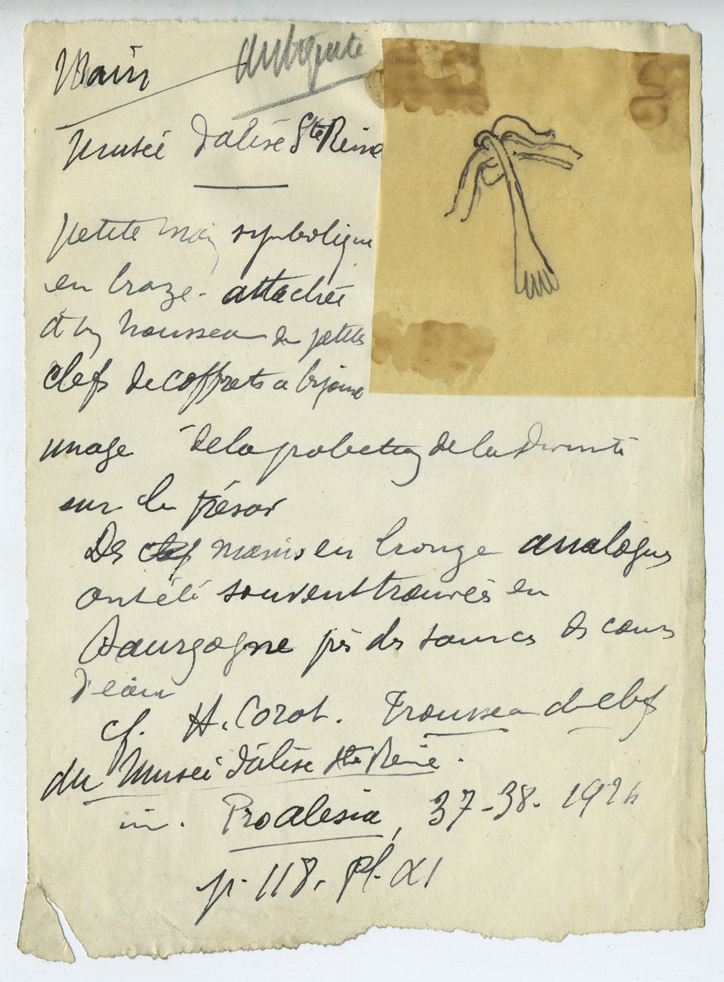 Main antiquité
Musée d'alise Ste Reine
petite main symbolique
en bronze - attachée
à un trousseau de petites
clefs de coffrets a bijoux
image de la protection de la divinité
sur le trésor
Des clef mains en bronze analogues
ont été souvent trouvées en
Bourgogne près des sources des cours
d'eau
cf. H. Corot. Trousseau de clefs
du Musée d'alise Ste Reine.
in. Pro alesia, 37-38. 192
p. 118. Pl. XI